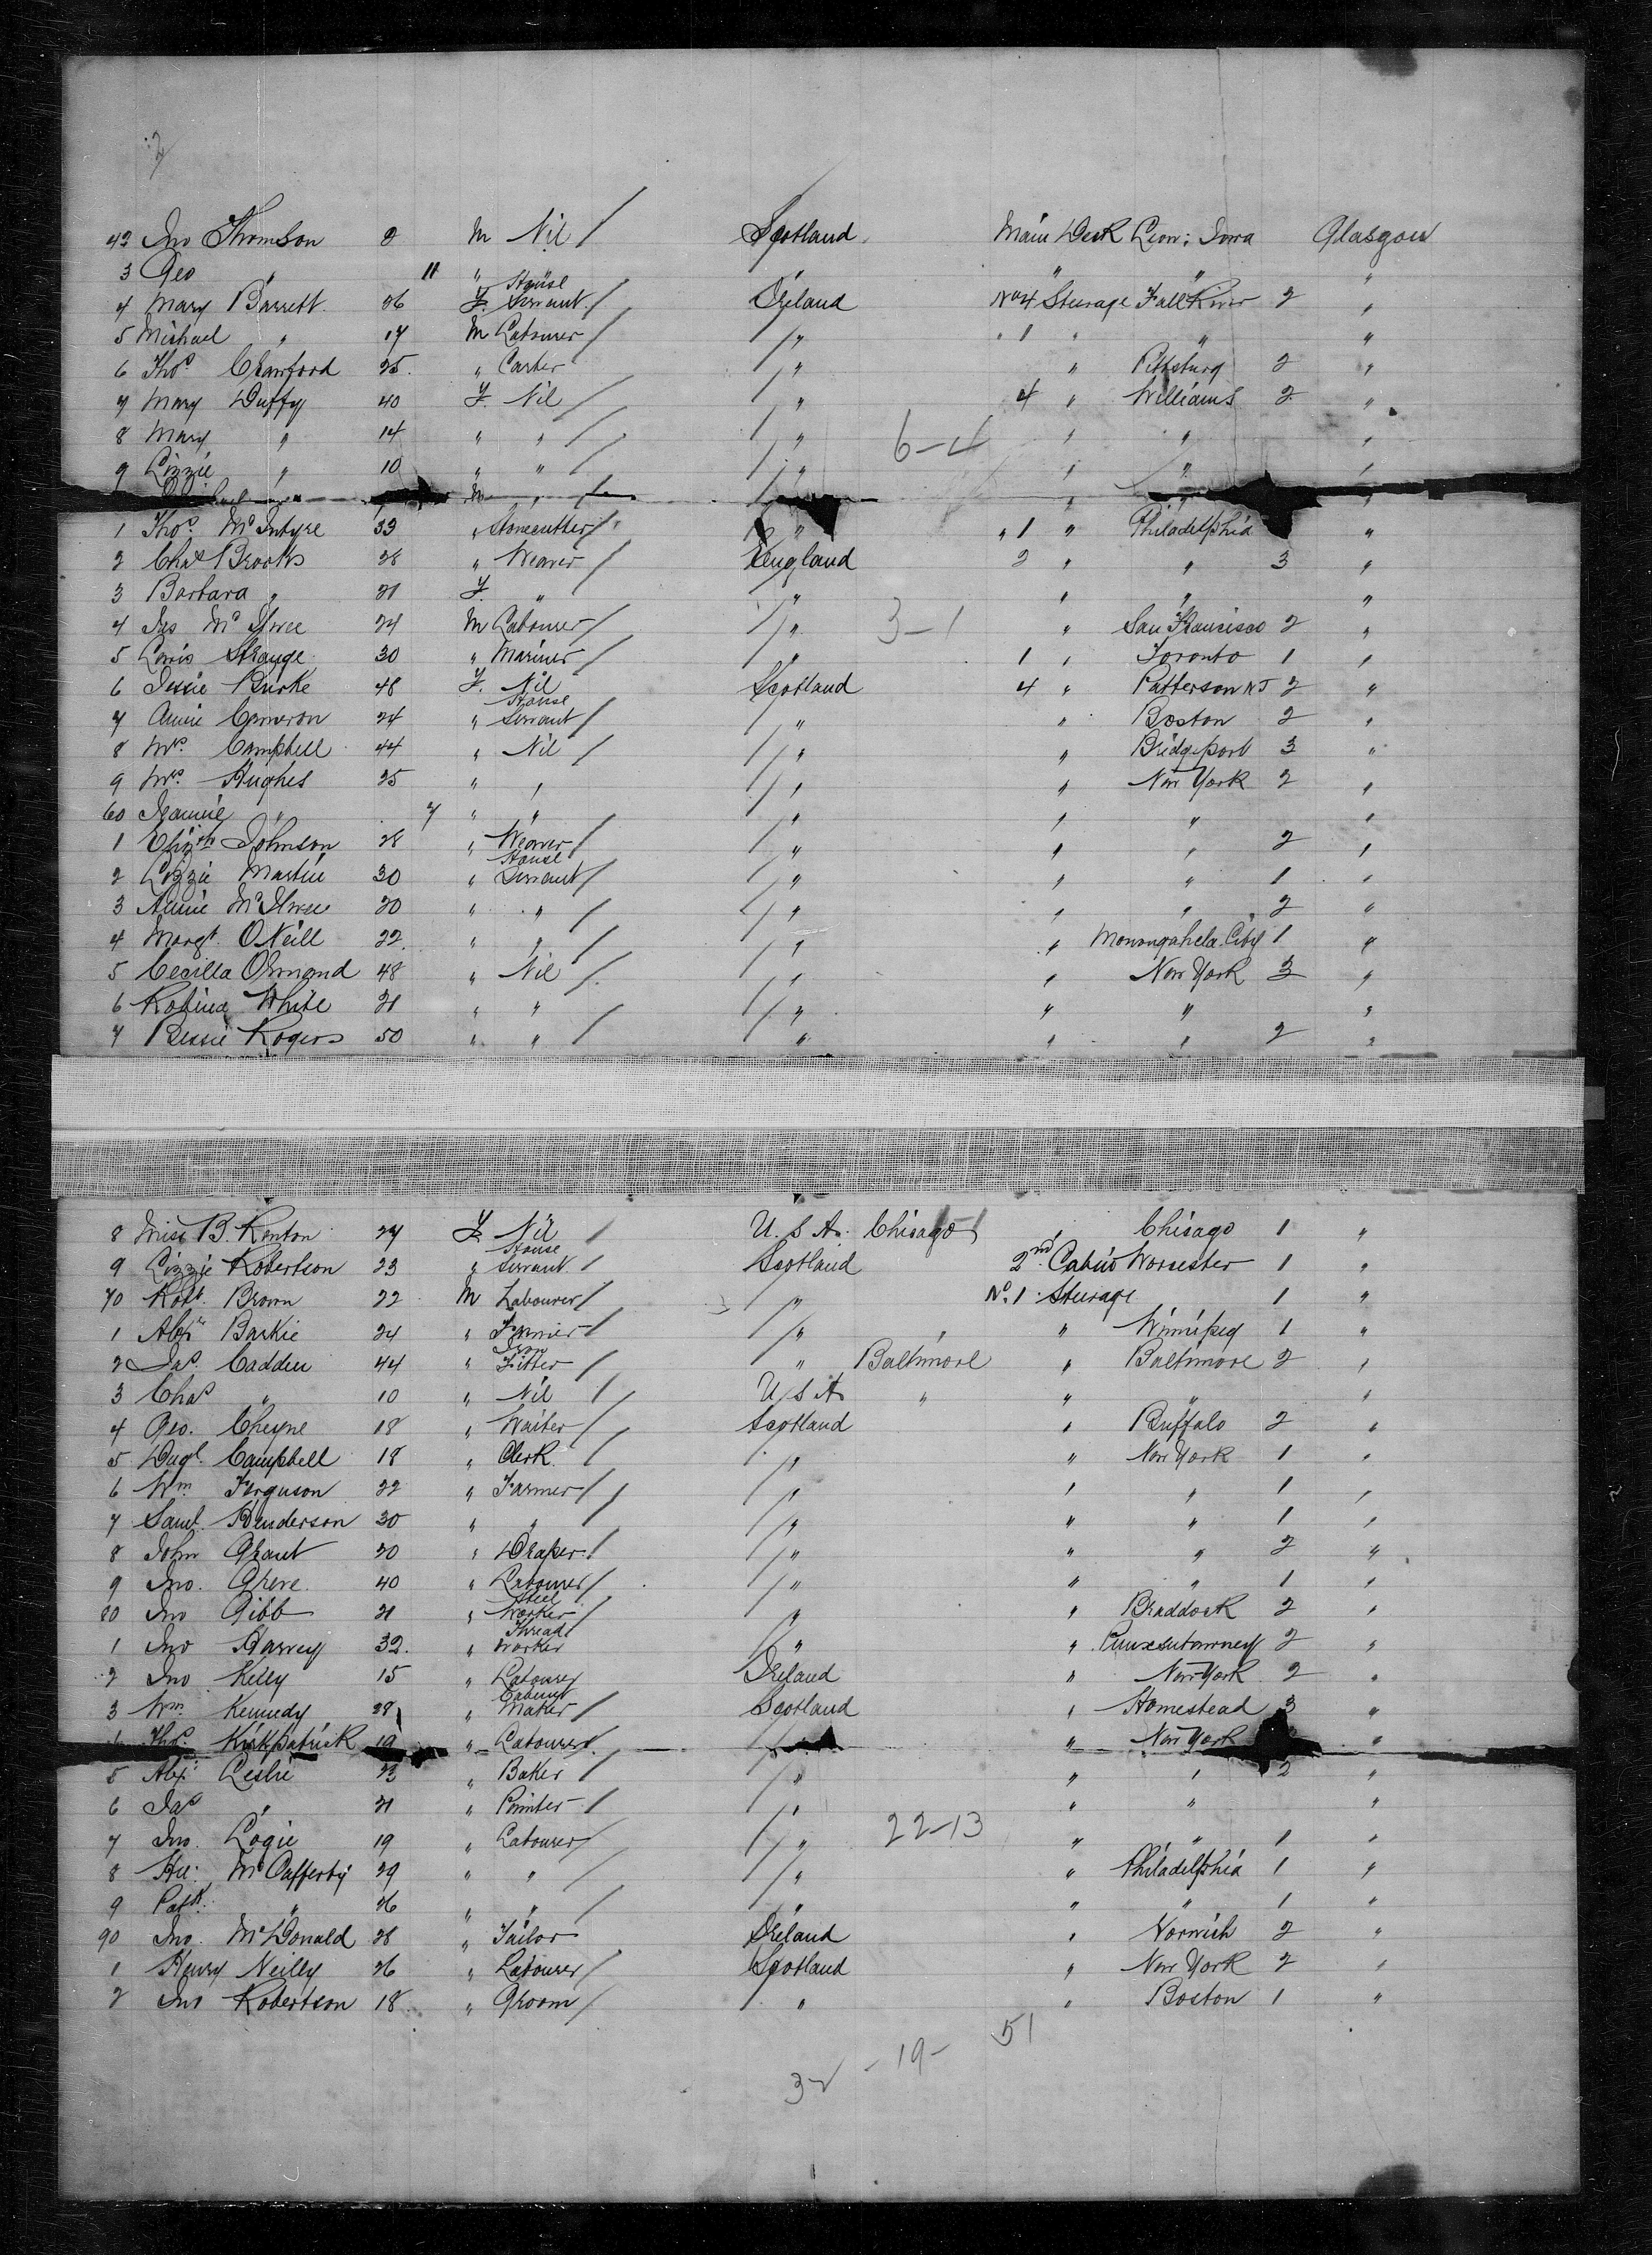 2
42 Jno Thomson 8 M Nil / Scotland Main Deck Leon; Iowa Glasgow
3 Geo " 11 " " " " "
4 Mary Barrett 26 F. House Servant / Ireland No 4 Steerage Fall River 2 "
5 Michael " 17 M Labourer / " " 1 " " "
6 Thos Crawford 25 " Carter / " " Pittsburg 2 "
7 Mary Duffy 40 F. Nil / " 4 " Williams 2 "
8 Mary " 14 " " / " 6-4 " " "
9 Lizzie " 10 " " / " " " "
M " / " " "
1 Thos McIntyre 33 " Stonecutter / " " 1 " Philadelphia "
2 Chas Brooks 28 " Weaver / England 2 " " 3 "
3 Barbara " 21 F. " " " " "
4 Jas McIlwee 24 M Labourer / " 3-1 " San Francisco 2 "
5 Louis Strange 30 " Mariner / " 1 " Toronto 1 "
6 Jessie Burke 48 F. Nil Scotland 4 " Patterson NJ 2 "
7 Annie Cameron 24 " House Servant / " " Boston 2 "
8 Mrs Campbell 44 " Nil / " " Bridgeport 3 "
9 Mrs Hughes 25 " " / " " New York 2 "
60 Jeannie " 7 " " " " " "
1 Elizth Johnson 28 " Weaver / " " " 2 "
2 Lizzie Martin 30 " House Servant / " " " 1 "
3 Annie McIlwee 20 " " / " " " 2 "
4 Margt. O'Neill 22 " " / " " Monongahela City 1 "
5 Cecilla Ormand 48 " Nil / " " New York 3 "
6 Robina White 21 " " / " " " "
7 Bessie Rogers 50 " " / " " " 2 "
8 Miss B. Kenton 27 F Nil / U.S.A. Chicago " Chicago 1 "
9 Lizzie Robertson 23 " House Servant / Scotland 2nd Cabin Worcester 1 "
70 Robt. Brown 22 M Labourer / " No. 1 Steerage 1 "
1 Alexr Barkie 24 " Farmer / " " " Winnipeg 1 "
2 Jas. Cadden 44 " Iron Fitter / " Baltimore " Baltimore 2 "
3 Chas " 10 " Nil / U.S.A. " " " "
4 Geo. Cheyne 18 " Waiter / Scotland " Buffalo 2 "
5 Dugl. Campbell 18 " Clerk / " " New York 1 "
6 Wm Ferguson 22 " Farmer / " " " 1 "
7 Saml. Henderson 30 " " / " " " 1 "
8 John Grant 20 " Draper / " " " 2 "
9 Jno. 40 " Labourer / " " " 1 "
80 Jno Gibb 21 " Steel Worker / " " Braddock 2 "
1 Jno Harvey 32 " Thread Worker " " Punxsutawney 2 "
2 Jno Kelly 15 " Labourer Ireland " New York 2 "
3 Wm Kennedy 28 " Cabinet Maker / Scotland " Homestead 3 "
Thos. Kirkpatrick 19 " Labourer / " New York "
5 Alexr Leslie 23 " Baker / " " " 2 "
6 Jas " 21 " Painter / " " " "
7 Jno. Logie 19 " Labourer / " 22-13 " " 1 "
8 Hu: McCafferty 29 " " / " " Philadelphia 1 "
9 Patk. " 26 " " / " " " 1 "
90 Jno. McDonald 28 " Tailor Ireland " Norwich 2 "
1 Henry Neilly 26 " Labourer / Scotland " New York 2 "
2 Jno Robertson 18 " Groom / " " Boston 1 "
32 - 19 - 51